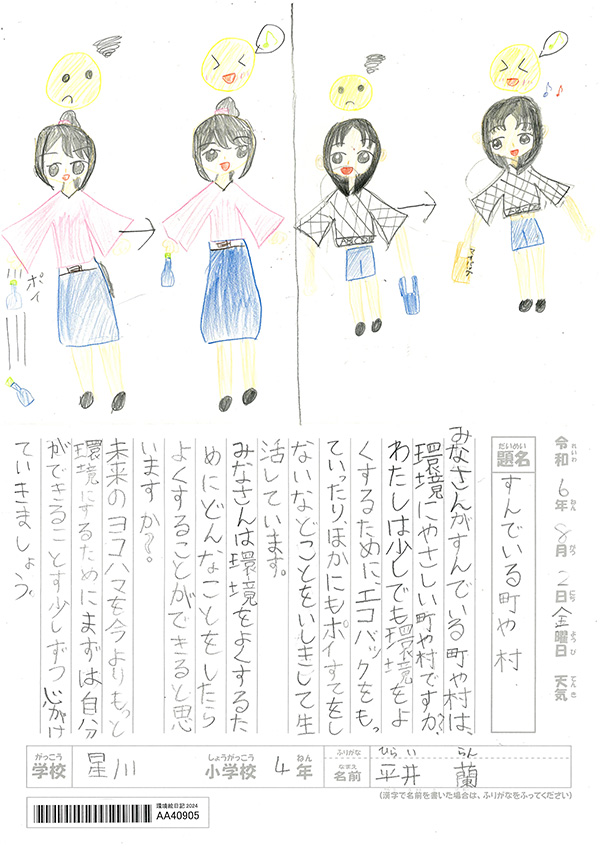 ポイ
マイバッグ
令和6年8月2日金曜日 天気
れいわ ねん がつ にち ようび てんき
だいめい
題名
すんでいる町や村
みなさんがすんでいる町や村は、
環境にやさしい町や村ですか?
わたしは少しでも環境をよ
くするために、エコバックをもっ
ていったりほかにもポイすてをし
ないなどことをいしきして生
活しています。
みなさんは環境をよくするた
めにどんなことをしたら
よくすることができると思
いますか?。
未来のヨコハマを今よりもっと
環境にするためにまずは自分
ができること す少しずつ心がけ
ていきましょう。
がっこう
学校
星川
しょうがっこう
小学校
4年
ねん
ふりがな
ひらい らん
なまえ
名前
平井 蘭
(漢字で名前を書いた場合は、ふりがなをふってください)
環境絵日記2024
AA40905